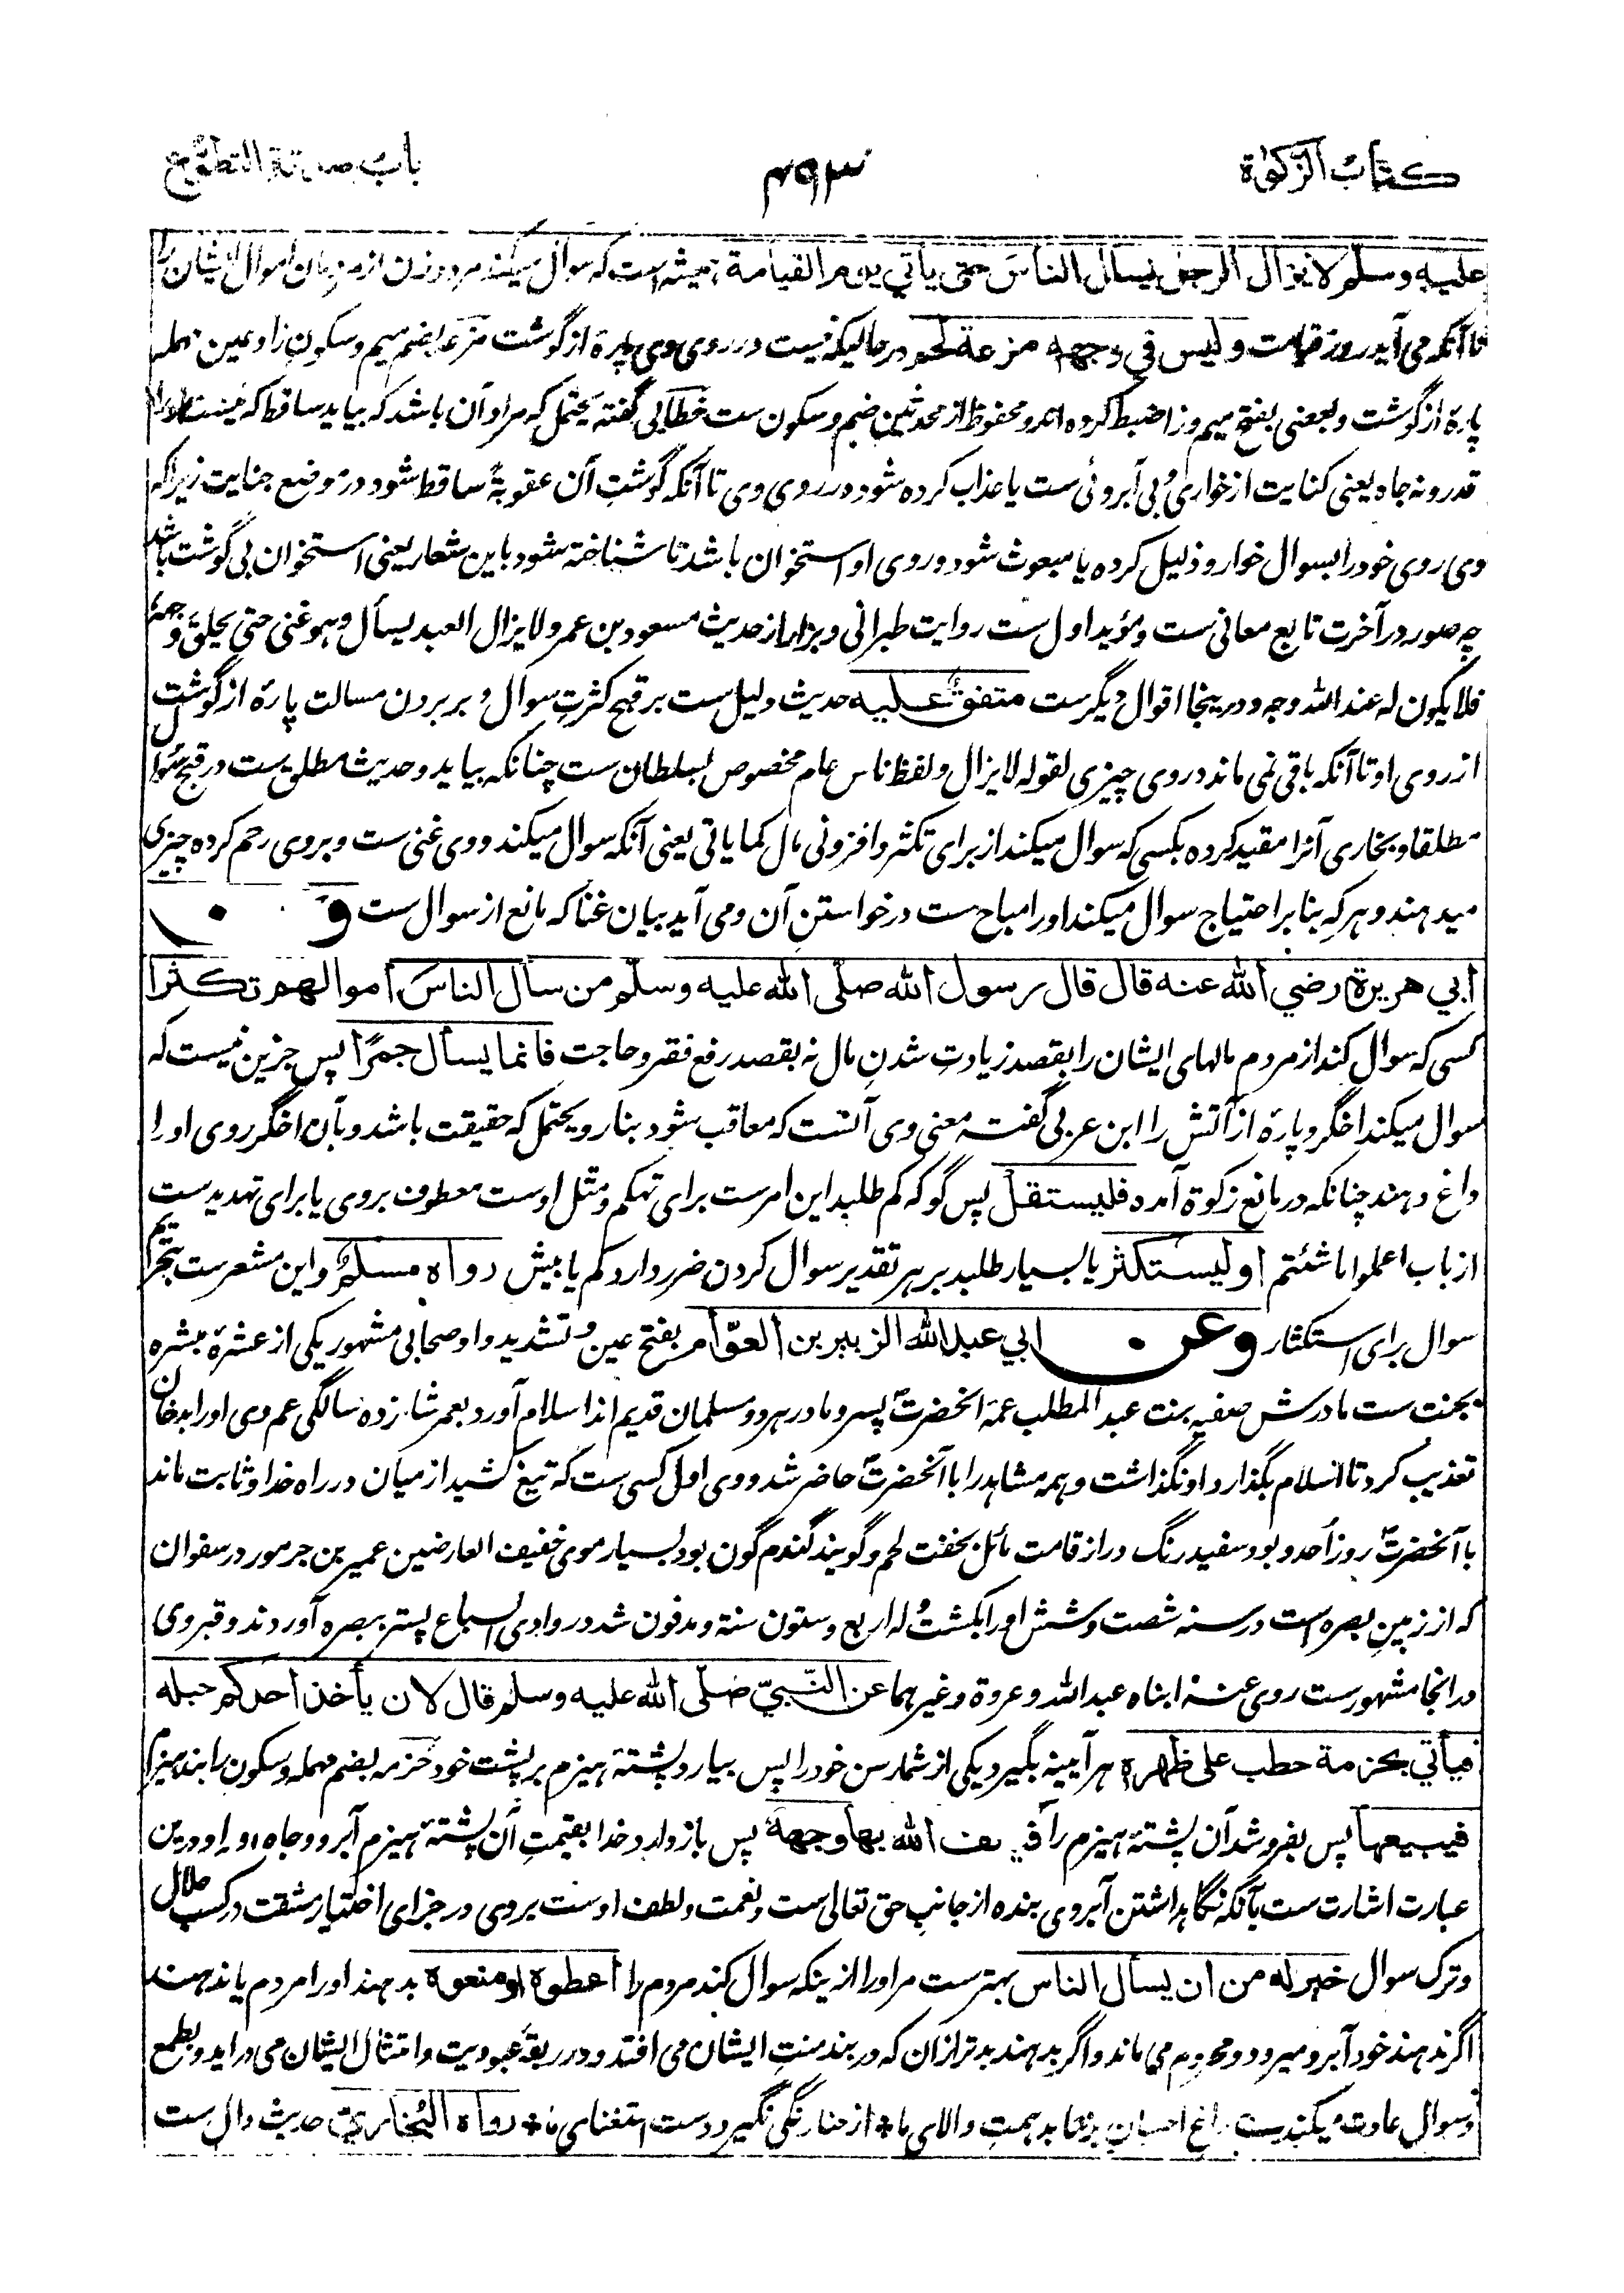 كتاب الزكوٰة
۴۹۳
باب صدقة التطوع
عليه وسلم لا يزال الرجل يسأل الناس حتى يأتي يوم القيامة ہمیشہ است کہ سوال میکند مرد و زن از مردمان اموال ایشان را
تا آنکہ می آید روز قیامت وليس في وجهه مزعة لحم در حالیکہ نیست در روی وی پارہ از گوشت مزعہ بضم میم و سکون زا و عین مہملہ
پارہ از گوشت و بعضی بفتح میم و زا ضبط کردہ اند و محفوظ از محدثین ضم و سکون ست خطابی گفتہ یحتمل کہ مراد آن باشد کہ بیاید ساقط کہ نیست او را
قدر و نہ جاہ یعنی کنایت از خواری و بی آبروئی ست یا عذاب کردہ شود در روی وی تا آنکہ گوشت آن عقوبۃً ساقط شود در موضع جنایت زیرا کہ
وی روی خود را بسوال خوار و ذلیل کردہ یا مبعوث شود و روی او استخوان باشد تا شناختہ شود باین شعار یعنی استخوان بی گوشت باشد
چہ صور در آخرت تابع معانی ست و مؤید اول ست روایت طبرانی و بزار از حدیث مسعود بن عمر و لا یزال العبد یسأل و ہو غنی حتی یخلق وجہہ
فلا یکون لہ عند اللہ وجہ و درینجا اقوال دیگر ست متفق عليه حدیث دلیل ست بر قبح کثرت سوال و بر بردن مسالت پارہ از گوشت
از روی او تا آنکہ باقی نمی ماند در روی چیزی لقولہ لا یزال و لفظ ناس عام مخصوص بسلطان ست چنانکہ بیاید و حدیث مطلق ست در قبح سوال
مطلقا و بخاری آنرا مقید کردہ بکسی کہ سوال میکند از برای تکثر و افزونی مال کما یاتی یعنی آنکہ سوال میکند و وی غنی ست و بروی رحم کردہ چیزی
میدہند و ہر کہ بنا بر احتیاج سوال میکند او را مباح ست درخواستن آن و می آید بیان غنا کہ مانع از سوال ست وعن
أبي هريرة رضي الله عنه قال قال رسول الله صلى الله عليه وسلم من سأل الناس أموالهم تكثرا
کسی کہ سوال کند از مردم مالهای ایشان را بقصد زیادت شدن مال نہ بقصد رفع فقر و حاجت فانما يسأل جمرًا پس جزین نیست کہ
سوال میکند اخگر و پارہ از آتش را ابن عربی گفتہ معنی وی آنست کہ معاقب شود بنار و یحتمل کہ حقیقت باشد و بآن اخگر روی او را
داغ دہند چنانکہ در مانع زکوۃ آمدہ فليستقل پس گو کہ کم طلبد این امرست برای تہکم و مثل اوست معطوف بروی یا برای تہدید ست
از باب اعملوا ما شئتم او ليستكثر یا بسیار طلبد بر ہر تقدیر سوال کردن ضرر دارد کم یا بیش رواه مسلم و این مشعر ست بتحریم
سوال برای استکثار وعن ابي عبد الله الزبير بن العوّام بفتح عین و تشدید واو صحابی مشہور یکی از عشرۂ مبشرہ
بجنت ست مادرش صفیہ بنت عبد المطلب عمۂ آنحضرت پسر و مادر ہر دو مسلمان قدیم اند اسلام آورد بعمر شانزدہ سالگی عم وی او را بدخان
تعذیب کرد تا اسلام بگذارد او نگذاشت و ہمہ مشاہد را با آنحضرت حاضر شد و وی اول کسی ست کہ تیغ کشید از میان در راہ خدا و ثابت ماند
با آنحضرت روز أحد و بود سفید رنگ دراز قامت مائل بخفت لحم و گویند گندم گون بود بسیار موی خفیف العارضین عمیر بن جرموز در سفوان
کہ از زمین بصرہ است در سنہ شصت و شش او را بکشت و لہ اربع و ستون سنة و مدفون شد در وادی السباع پستر ببصرہ آوردند و قبر وی
در انجا مشہور ست روی عنہ ابناہ عبد اللہ و عروة و غیرہما عن النبي صلى الله عليه وسلم قال لان يأخذ أحدكم حبله
فيأتي بحزمة حطب على ظهره ہر آیینہ بگیرد یکی از شما رسن خود را پس بیارد پشتۂ ہیزم بر پشت خود حزمہ بضم مہملہ و سکون را بند ہیزم
فيبيعها پس بفروشد آن پشتۂ ہیزم را فيكف الله بها وجهه پس باز دارد خدا بقیمت آن پشتۂ ہیزم آبرو و جاہ او را و درین
عبارت اشارت ست بآنکہ نگاہداشتن آبروی بندہ از جانب حق تعالی ست و نعمت و لطف اوست بروی در جزای اختیار مشقت در کسب حلال
و ترک سوال خير له من ان يسأل الناس بہتر ست مر او را از ینکہ سوال کند مردم را أعطوه او منعوه بدہند او را مردم یا ندہند
اگر ندہند خود آبرو میرود و محروم می ماند و اگر بدہند بدتر از ان کہ در بند منت ایشان می افتد و در ربقۂ عبودیت و امتثال ایشان می در اید و بطمع
و سوال عادت میکند بیت داغ احسان بر نتابد ہمت والای ما * از حنا رنگی نگیرد دست استغنای ما * رواه البخاري حدیث دال ست